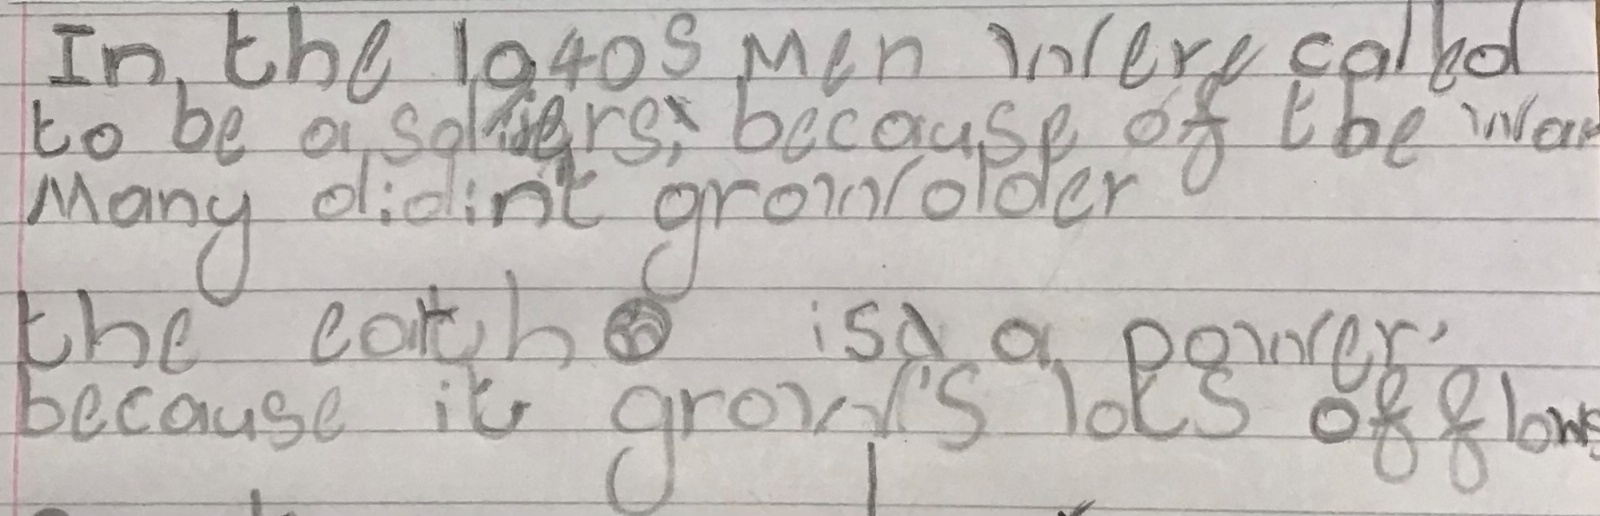 In the 1940s Men were called
to be a soldiers, because of the war
Many didint grow older
the earth is a power,
because it grow's lots of flows